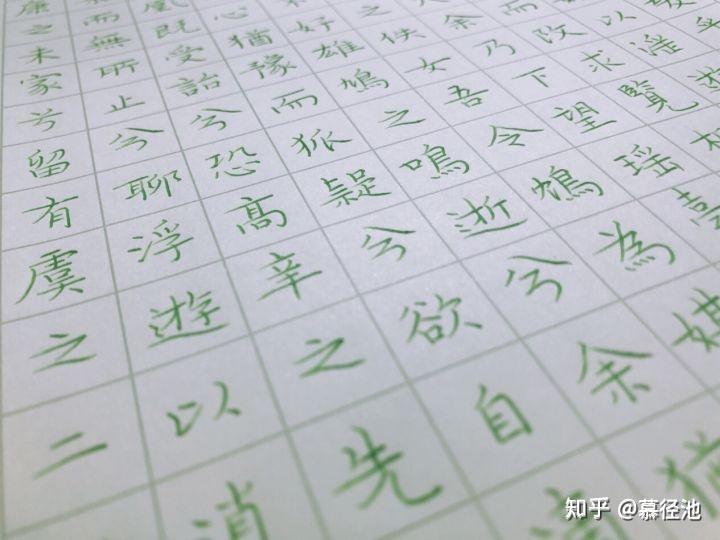 以淫遊
而改求覽相
余乃下望瑤
之佚女吾令鴆為媒
好雄鳩之鳴逝兮余猶
心猶豫而狐疑兮欲自適
凰既受詒兮恐高辛之先
而無所止兮聊浮遊以消
康之未家兮留有虞之二
知乎 @慕径池